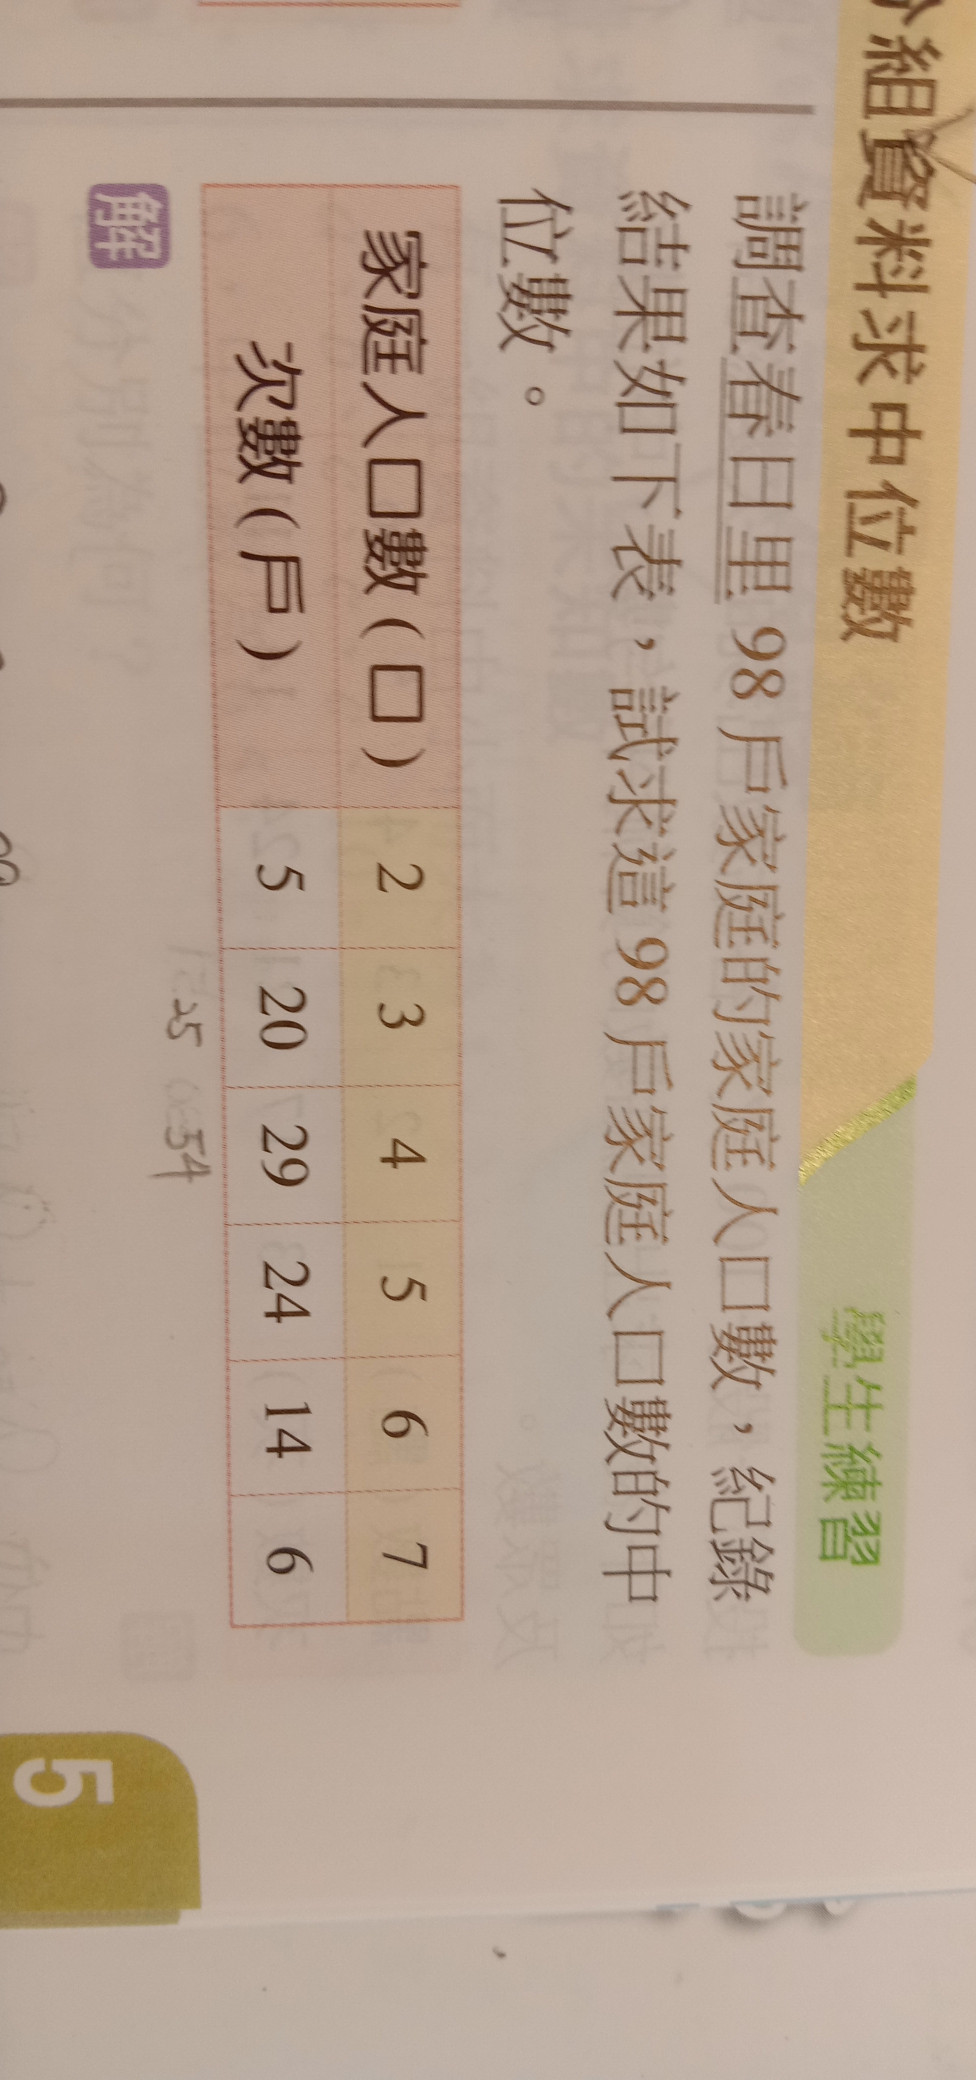 組資料求中位數
學生練習
調查春日里 98 戶家庭的家庭人口數，紀錄
結果如下表，試求這 98 戶家庭人口數的中
位數。
家庭人口數（口） 2 3 4 5 6 7
次數（戶） 5 20 29 24 14 6
25 54
解
5